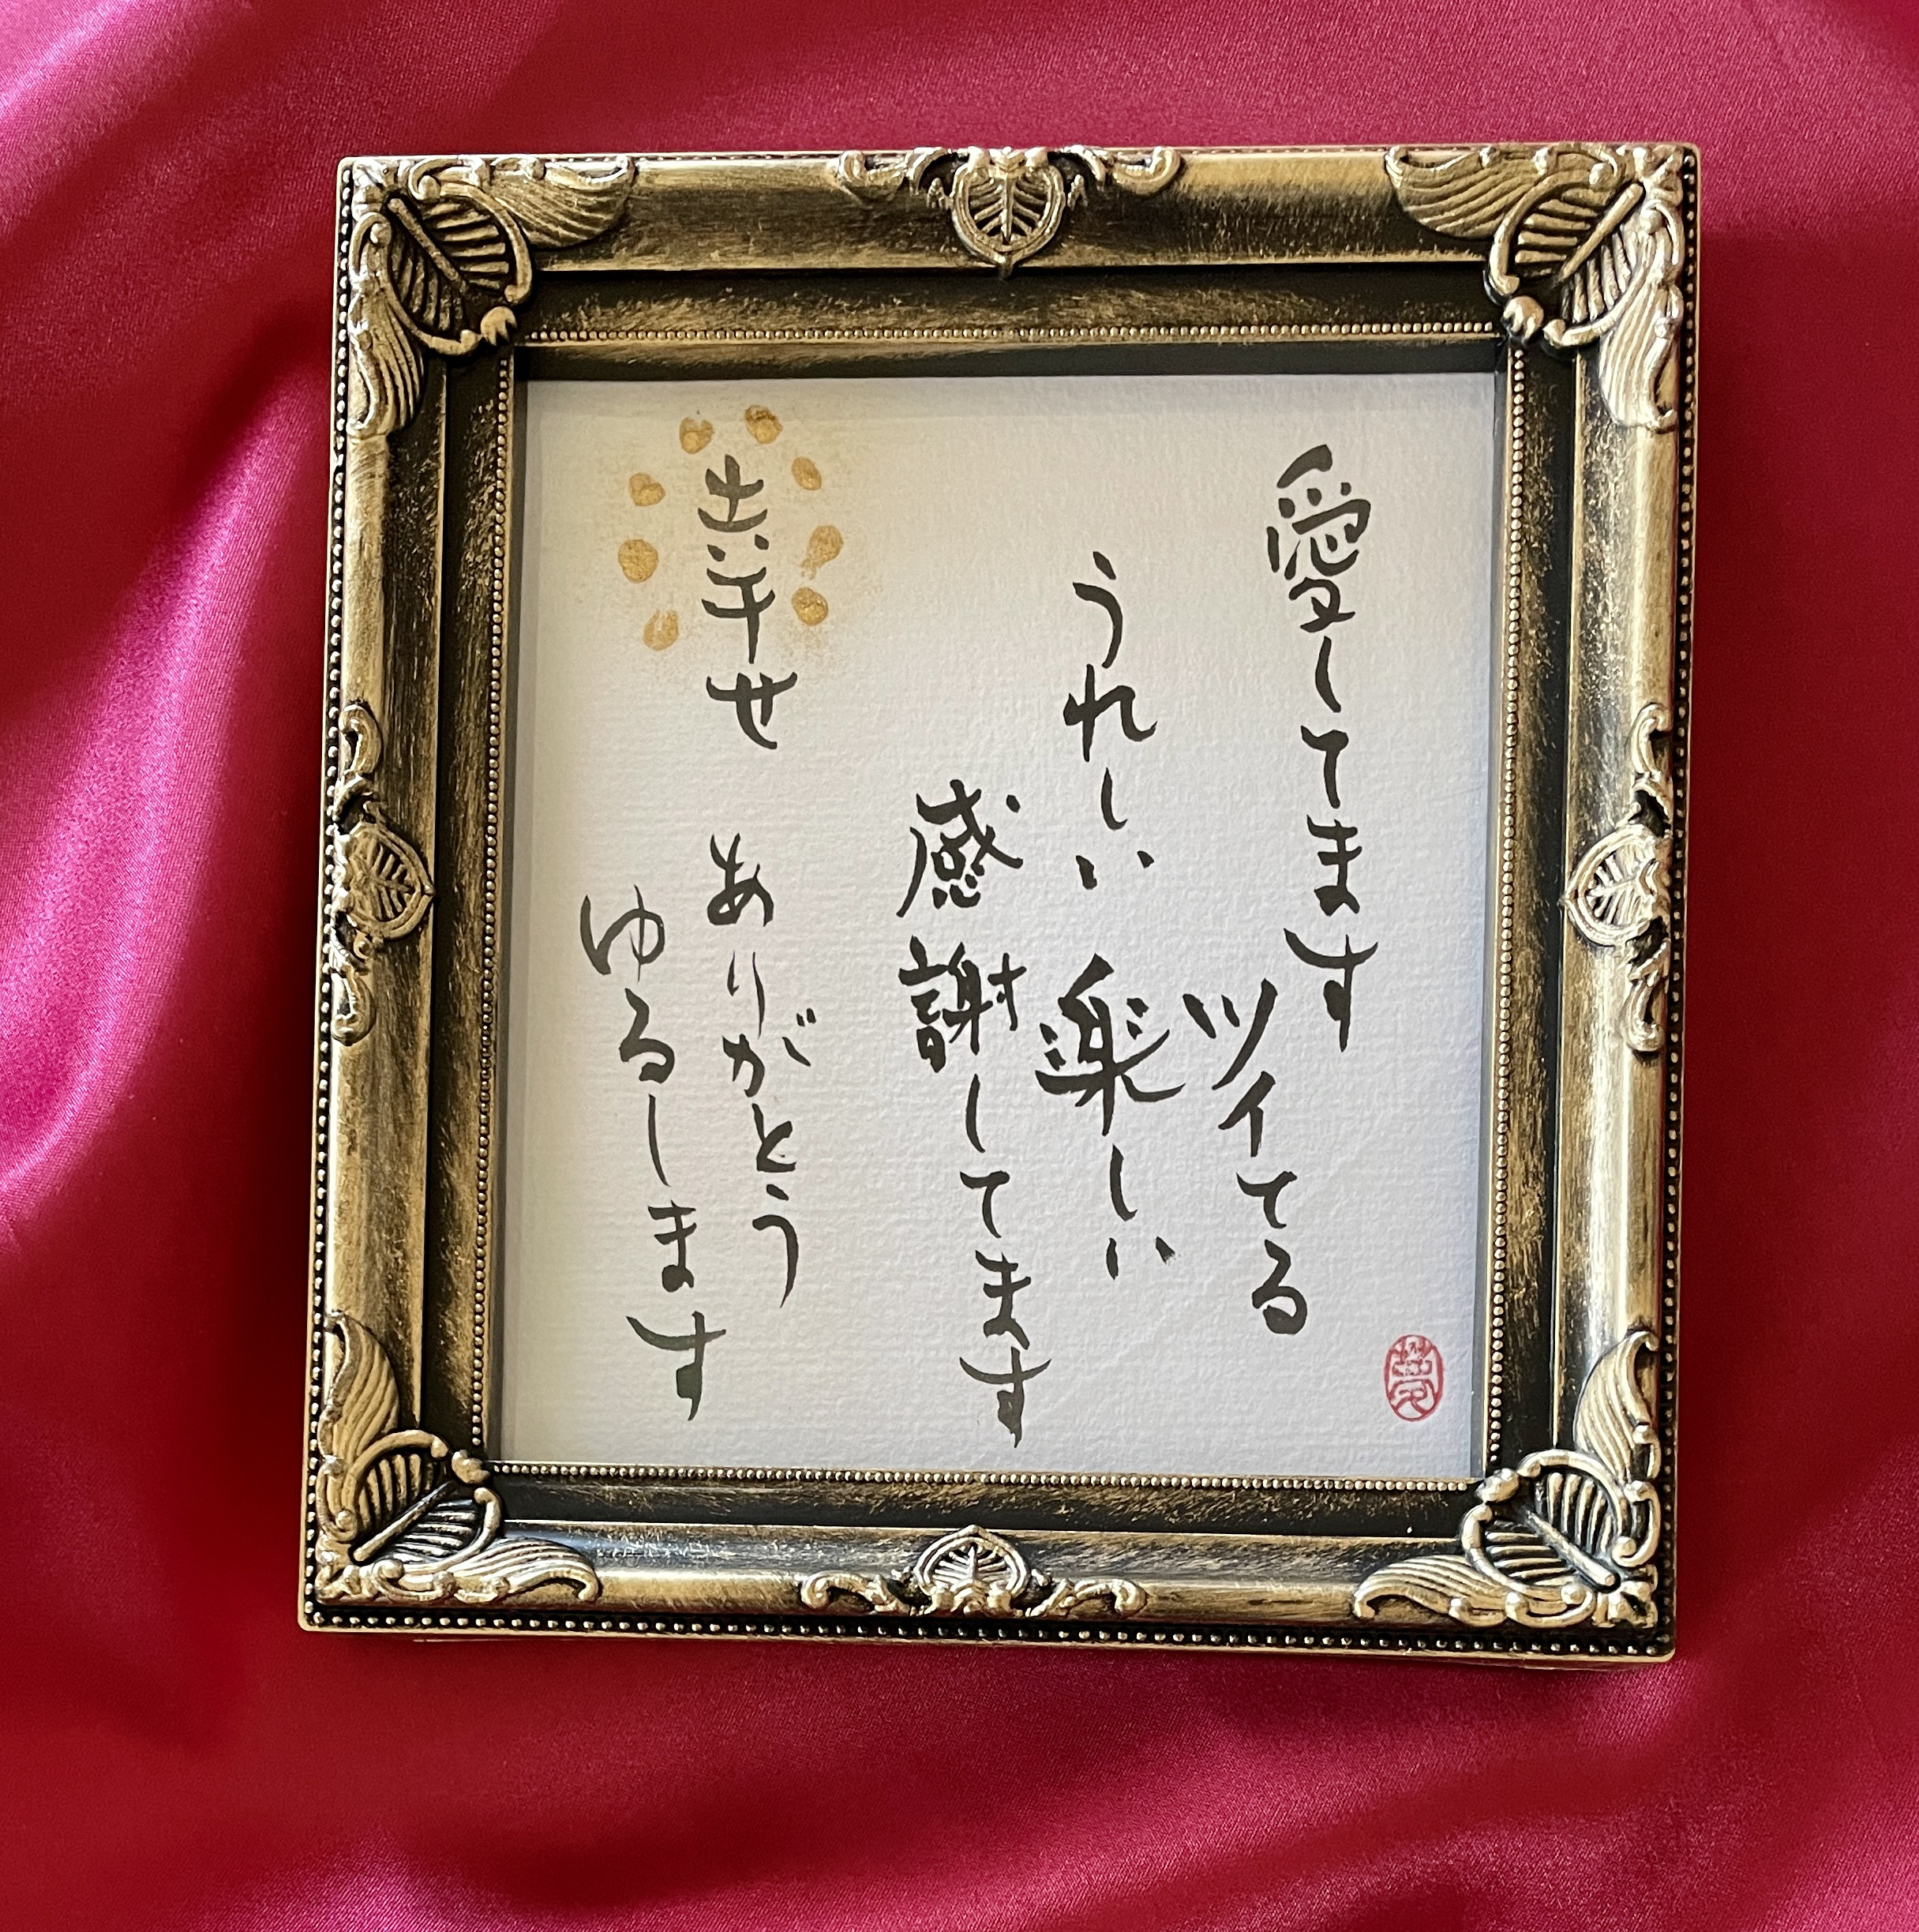 愛してます
ツイてる
うれしい
楽しい
感謝してます
幸せ
ありがとう
ゆるします